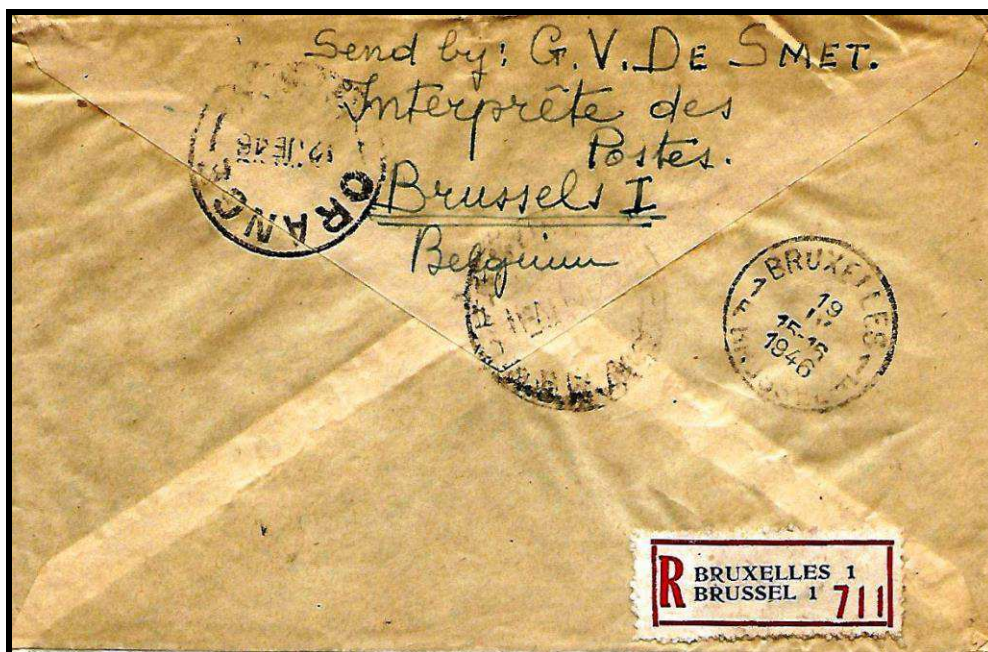 Send by: G. V. DE SMET.
Interprête des
Postes.
Brussels I
Belgium
ORANG
BRUXELLES 1
19
IV
15-16
1946
R BRUXELLES 1
BRUSSEL 1 711